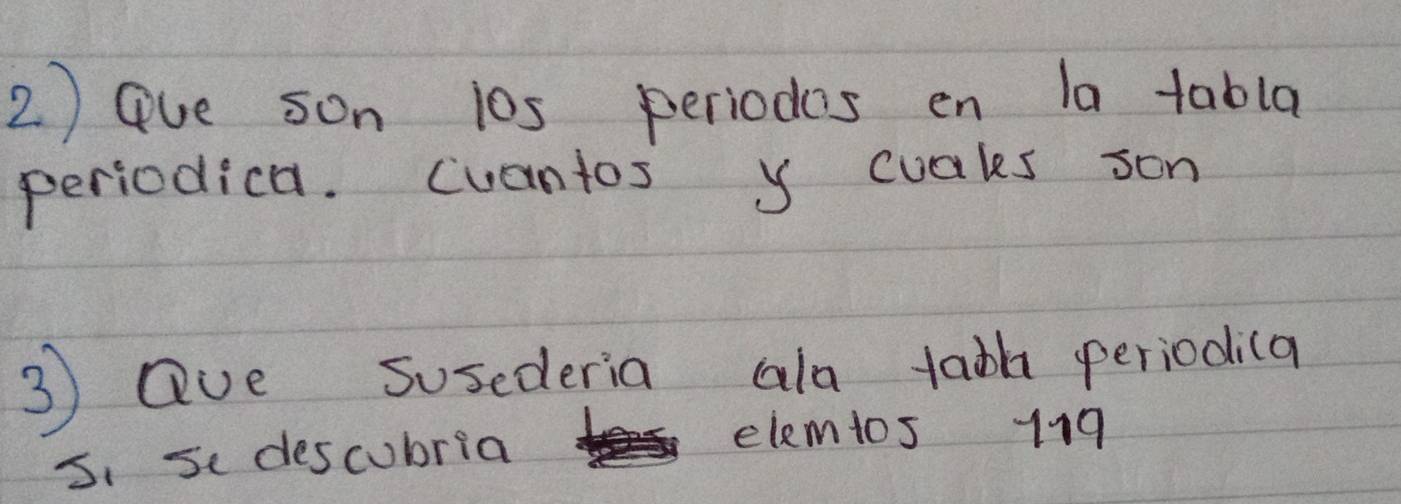 2) Que son los periodos en la tabla
periodica. Cuantos y cuales son
3) Que Susederia ala tabla periodica
Si se descubria elemtos 119